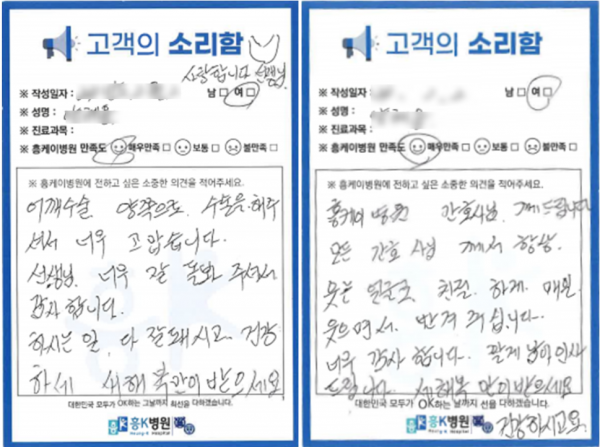 고객의 소리함
사랑합니다 선생님
※ 작성일자 :
남 □ 여 □
※ 성명 :
※ 진료과목 :
※ 흥케이병원 만족도 매우만족 □ 보통 □ 불만족 □
※ 흥케이병원에 전하고 싶은 소중한 의견을 적어주세요.
어깨수술 양쪽으로, 수술을 해주
셔서 너무 고맙습니다.
선생님. 너무 잘 돌봐 주셔서
감사 합니다.
하시는 일, 다 잘돼시고, 건강
하세 새해 복 많이 받으세요
대한민국 모두가 OK하는 그날까지 최선을 다하겠습니다.
흥K병원
고객의 소리함
※ 작성일자 :
남 □ 여 □
※ 성명 :
※ 진료과목 :
※ 흥케이병원 만족도 매우만족 □ 보통 □ 불만족 □
※ 흥케이병원에 전하고 싶은 소중한 의견을 적어주세요.
흥케이 병원 간호사님, 께 드립니다
모든 간호 사님 께서 항상.
웃는 얼굴로 친절. 하게. 매일.
웃으면서. 반겨 주십니다.
너무 감사 합니다. 함께 많이 인사
드립니다. 새해복 많이 받으세요
대한민국 모두가 OK하는 날까지 선을 다하겠습니다.
건강하시고요.
흥K병원